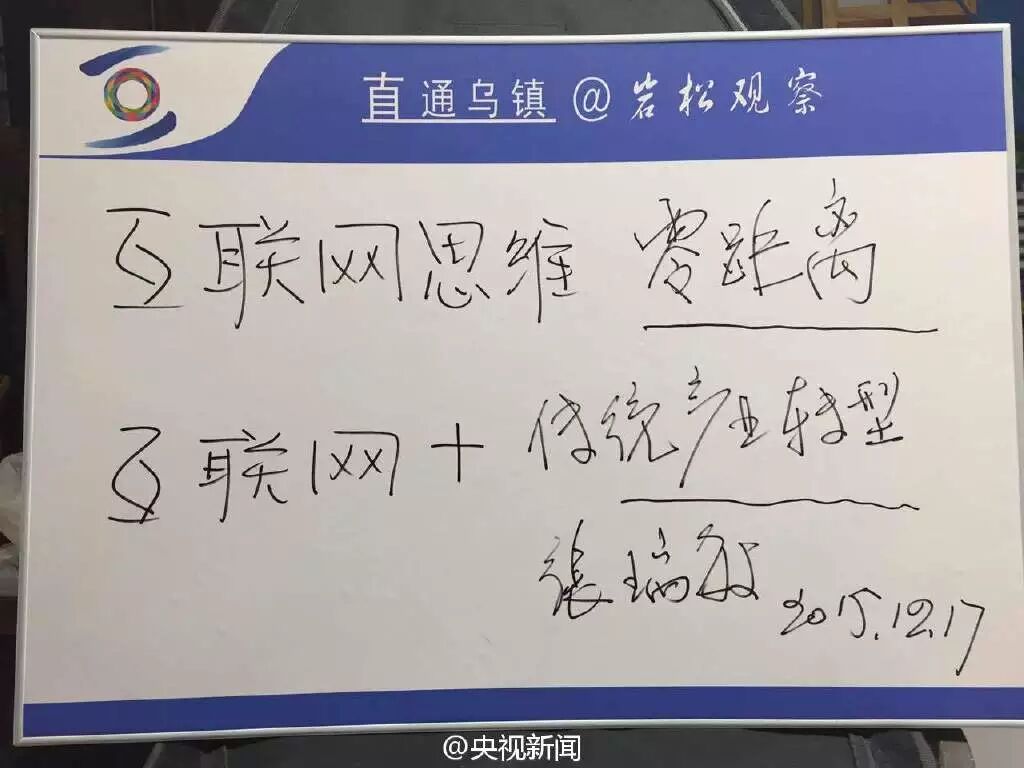 直通乌镇@岩松观察
互联网思维 零距离
互联网+传统产业转型
张瑞敏 2015.12.17
@央视新闻